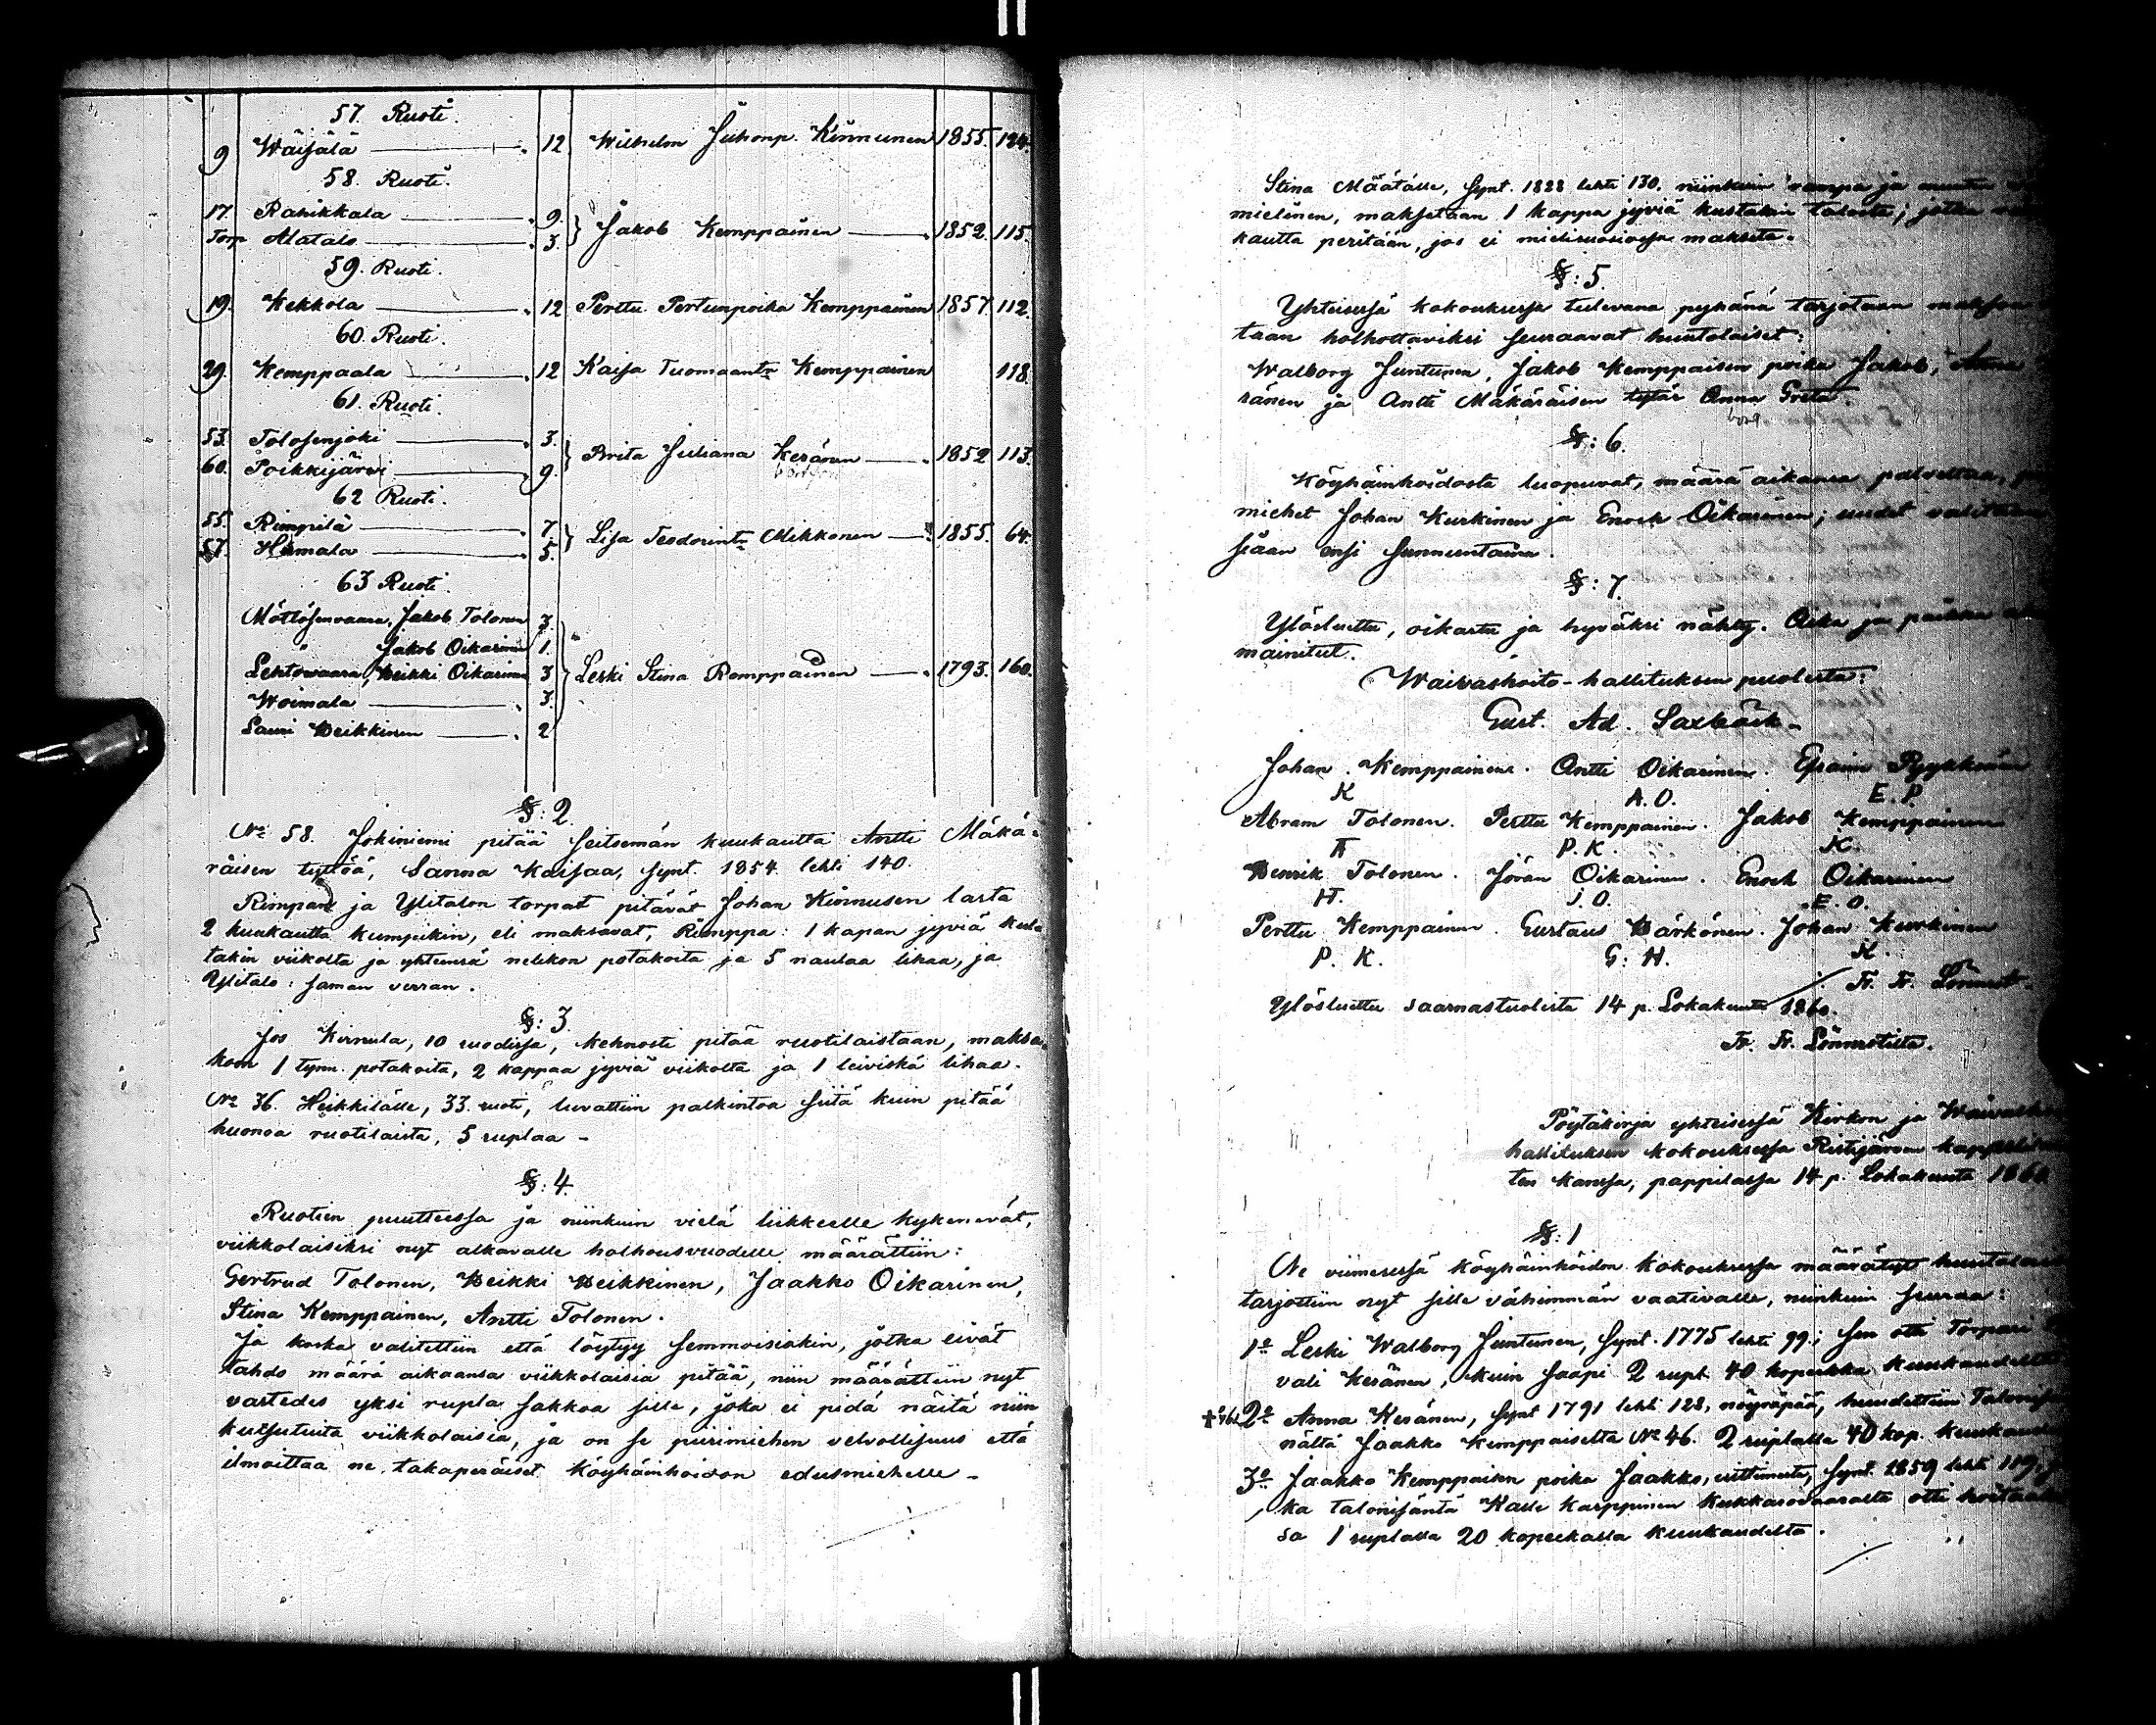 57. Ruoti.
9 Wäisälä 12 Wilhelm Juhonp. Kinnunen 1855. 124.
58. Ruoti.
17. Rahikkala 9.
Torp Alatalo 3. Jakob Kemppainen 1852. 115.
59. Ruoti.
19. Kekkola 12 Perttu Pertunpoika Kemppainen 1857 112.
60. Ruoti.
29. Kemppaala 12 Kaisa Tuomaantr Kemppainen 118.
61. Ruoti.
53. Tolosenjoki 3.
60. Poikkijärvi 9. Brita Juliana Keränen 1852 113.
62 Ruoti.
55. Rimpilä 7.
57. Hamala 5. Lisa Teodorintr Mikkonen 1855. 64.
63 Ruoti.
Möttösenvaara, Jakob Tolonen 3.
" Jakob Oikarinen 1.
Lehtowaara, Heikki Oikarinen 3 Leski Stina Romppainen 1793. 160.
Woimala 3.
Lauri Heikkinen 2
§: 2.
No 58. Jokiniemi pitää seitsemän kuukautta Antti Mäkä-
räisen tyttöä, Sanna Kaisaa, synt. 1854 lehti 140.
Rimpan ja Ylitalon torpat pitävät Johan Kinnusen lasta
2 kuukautta kumpikin, eli maksavat, Rimppa: 1 kapan jyviä kus-
takin viikolta ja yhteensä nelikon potakoita ja 5 naulaa lihaa, ja
Ylitalo: saman verran.
§: 3.
Jos Kirnula, 10 ruodissa, kehnosti pitää ruotilaistaan, maksa-
koon 1 tynn. potakoita, 2 kappaa jyviä viikolta ja 1 leiviskä lihaa.
No 36. Heikkilälle, 33. ruoti, luvattiin palkintoa siitä kuin pitää
huonoa ruotilaista, 5 ruplaa -
§: 4.
Ruotien puutteessa ja niinkuin vielä liikkeelle kykenevät,
viikkolaisiksi nyt alkavalle holhousvuodelle määrättiin:
Gertrud Tolonen, Heikki Heikkinen, Jaakko Oikarinen,
Stina Kemppainen, Antti Tolonen.
Ja koska valitettiin että löytyy semmoisiakin, jotka eivät
tahdo määrä aikaansa viikkolaisia pitää, niin määrättiin nyt
vastedes yksi rupla sakkoa sille, joka ei pidä näitä niin
kutsutuita viikkolaisia, ja on se piirimiehen velvollisuus että
ilmoittaa ne takaperäiset köyhäinhoidon edusmiehelle -
Stina Määtälle, synt. 1828 lehti 130. niinkuin rampa ja muuten
mielinen, maksetaan 1 kappa jyviä kustakin talosta; jotka
kautta peritään, jos ei mielisuosiossa makseta.
§: 5.
Yhteisessä kokouksessa tulevana pyhänä tarjotaan
taan holhottaviksi seuraavat huutolaiset:
Walborg Juntunen, Jakob Kemppaisen poika Jakob, Anna
ränen ja Antti Mäkäräisen tytär Anna Greta.
§: 6.
Köyhäinhoidosta luopuvat, määrä aikansa palveltuaan,
miehet Johan Kurkinen ja Enoch Oikarinen; uudet valitaan
siaan ensi sunnuntaina.
§: 7.
Ylösluettu, oikastu ja hyväksi nähty. Aika ja paikka
mainitut.
Waivashoito-hallituksen puolesta:
Gust. Ad. Saxbäck -
Johan Kemppainen. Antti Oikarinen. Epraim Pyykkönen
K A. O. E. P.
Abram Tolonen. Perttu Kemppainen. Jakob Kemppainen
A P. K. K.
Henrik Tolonen. Jöran Oikarinen. Enoch Oikarinen
H. J. O. E. O.
Perttu Kemppainen. Gustaus Härkönen. Johan Kurkinen
P. K. G. H. K.
Fr. Fr. Lönnrot.
Ylösluettu saarnastuolista 14 p. Lokakuuta 1860.
Fr. Fr. Lönnrotilta.
Pöytäkirja yhteisessä Kirkon ja
hallituksen kokouksessa Ristijärven
ten kanssa, pappilassa 14 p. Lokakuuta 1860
§: 1
Ne viimesessä köyhäinhoidon kokouksessa määrätyt
tarjottiin nyt sille vähimmän vaativalle, niinkuin seuraa:
1o Leski Walborg Juntunen, synt. 1775 lehti 99.; sen otti Torpari
vali Keränen, kuin saapi 2 rupl. 40 kopeekka kuukaudelta
2o Anna Keränen, synt 1791 lehti 128, nöyräpää, huudettiin
nältä Jaakko Kemppaiselta No 46. 2 ruplalla 40 kop.
3o Jaakko Kemppaisen poika Jaakko, synt. 1859 lehti 119,
ka talonisäntä Kalle Karppinen Kukkasovaaralta otti
sa 1 ruplalla 20 kopeekalla kuukaudelta.